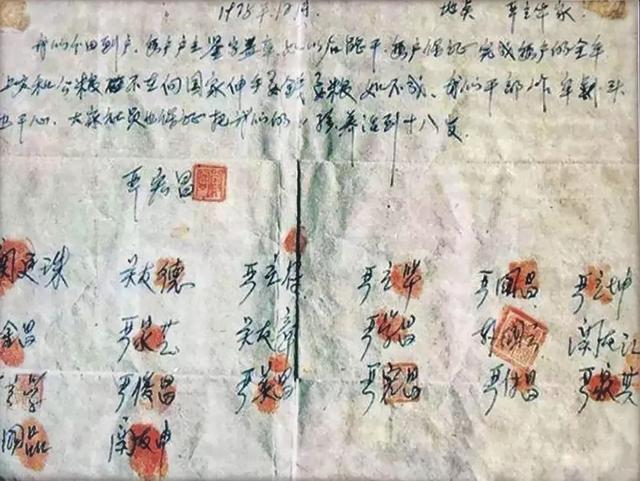 1978年12月. 地点 严立华家
我们分田到户,每户户主签字盖章,如以后能干,每户保证完成每户的全年
上交和公粮 不在向国家伸手要钱要粮 如不成、我们干部作牢刹头
也干心、大家社员也保证把我们的小孩、养活到十八岁.
严宏昌
关廷珠 关友德 严立符 严立华 严国昌 严立坤
金昌 严家芝 关友章 严学昌 韩国云 关友江
立学 严俊昌 严美昌 严宏昌 严付昌 严家其
国品 关友申